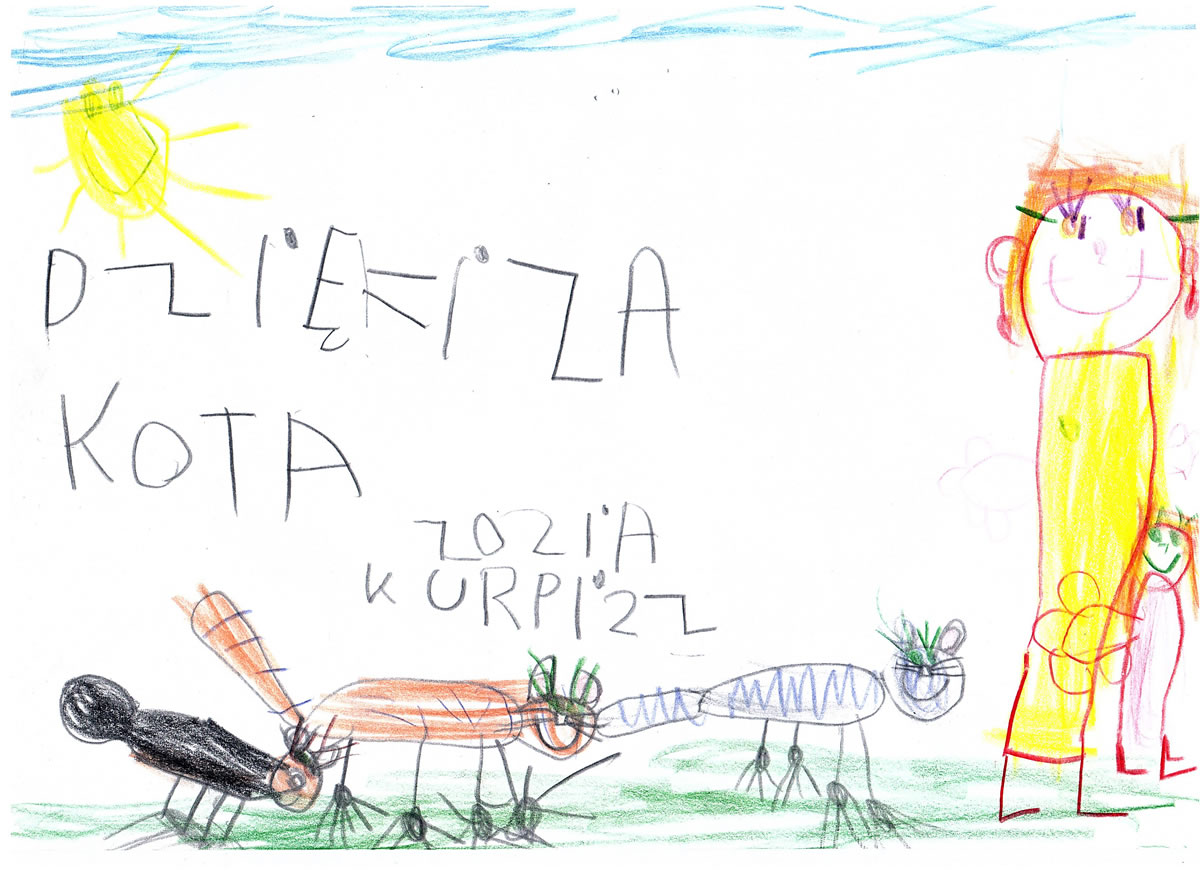 DZIĘKI ZA
KOTA
ZOZIA
KURPISZ